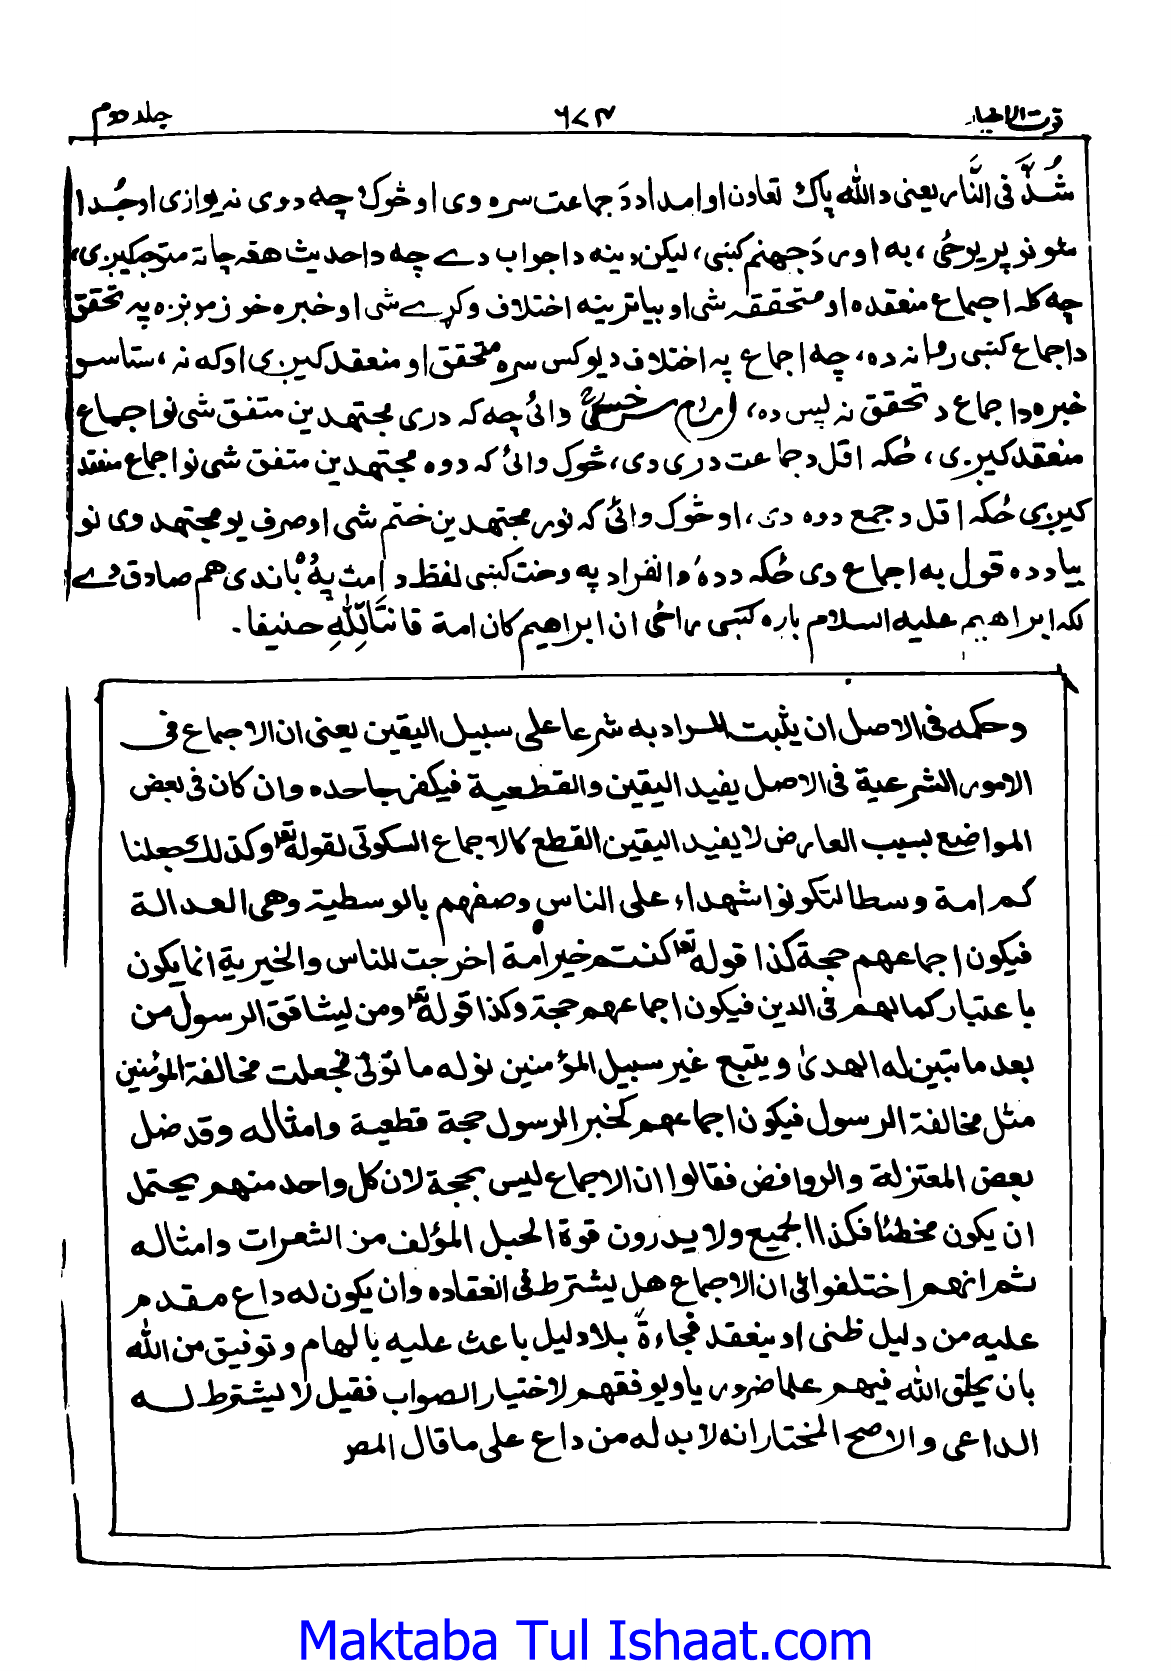 قوت الاخیار ۶۷۴ جلد دوم
شُذَّ فی النَّار یعنی د الله پاک تعاون او امداد دَ جماعت سره وی او څوک چه د دوی نه یوازی او جُدا
شو نو پریوځی ، به اور دَ جهنم کښی، لیکن دینه دا جواب دے چه دا حدیث هغه چاته متوجه کیږی،
چه کله اجماع منعقده او متحققه شی او بیا ترینه اختلاف وکړے شی او خبره خو زمونږه په تحقق
د اجماع کښی روانه ده، چه اجماع په اختلاف د یو کس سره متحقق او منعقد کیږی او که نه ، ستاسو
خبره د اجماع د تحقق نه پس ده، امام سرخسیؒ وائی چه که دری مجتهدین متفق شی نو اجماع
منعقد کیږی ، ځکه اقل د جماعت دری دی، څوک وائی که دوه مجتهدین متفق شی نو اجماع منعقد
کیږی ځکه اقل د جمع دوه دی ، او څوک وائی که نور مجتهدین ختم شی او صرف یو مجتهد وی نو
بیا د ده قول به اجماع دی ځکه د ده دَ انفراد په وخت کښی لفظ د امت په ده باندی هم صادق دے
لکه ابراهیم علیه السلام باره کښی راځی ان ابراهیم کان امة قانتًا لِّلّٰهِ حنیفا .
وحکمه فی الاصل ان یثبت المراد به شرعا علی سبیل الیقین یعنی ان الاجماع فی
الامور الشرعیة فی الاصل یفید الیقین والقطعیة فیکفر جاحده وان کان فی بعض
المواضع بسبب العارض لا یفید الیقین القطع کالاجماع السکوتی لقوله تعالٰی وکذلك جعلنا
کم امة وسطا لتکونوا شهداء علی الناس وصفهم بالوسطیة وهی العدالة
فیکون اجماعهم حجة کذا قوله تعالٰی کنتم خیر امة اخرجت للناس والخیریة انما یکون
باعتبار کمالهم فی الدین فیکون اجماعهم حجة وکذا قوله تعالٰی ومن یشاقق الرسول من
بعد ما تبین له الهدیٰ ویتبع غیر سبیل المؤمنین نوله ما تولّٰی فجعلت مخالفة المؤمنین
مثل مخالفة الرسول فیکون اجماعهم کخبر الرسول حجة قطعیة وامثاله وقد ضل
بعض المعتزلة والروافض فقالوا ان الاجماع لیس بحجة لان کل واحد منهم یحتمل
ان یکون مخطئا فکذا الجمیع ولا یدرون قوة الحبل المؤلف من الشعرات وامثاله
ثم انهم اختلفوا فی ان الاجماع هل یشترط فی انعقاده وان یکون له داع مقدم
علیه من دلیل ظنی او ینعقد فجاءة بلا دلیل باعث علیه بالهام وتوفیق من الله
بان یخلق الله فیهم علما ضروریا ویوفقهم لاختیار الصواب فقیل لا یشترط له
الداعی والاصح المختار انه لا بد له من داع علی ما قال المصر
Maktaba Tul Ishaat.com